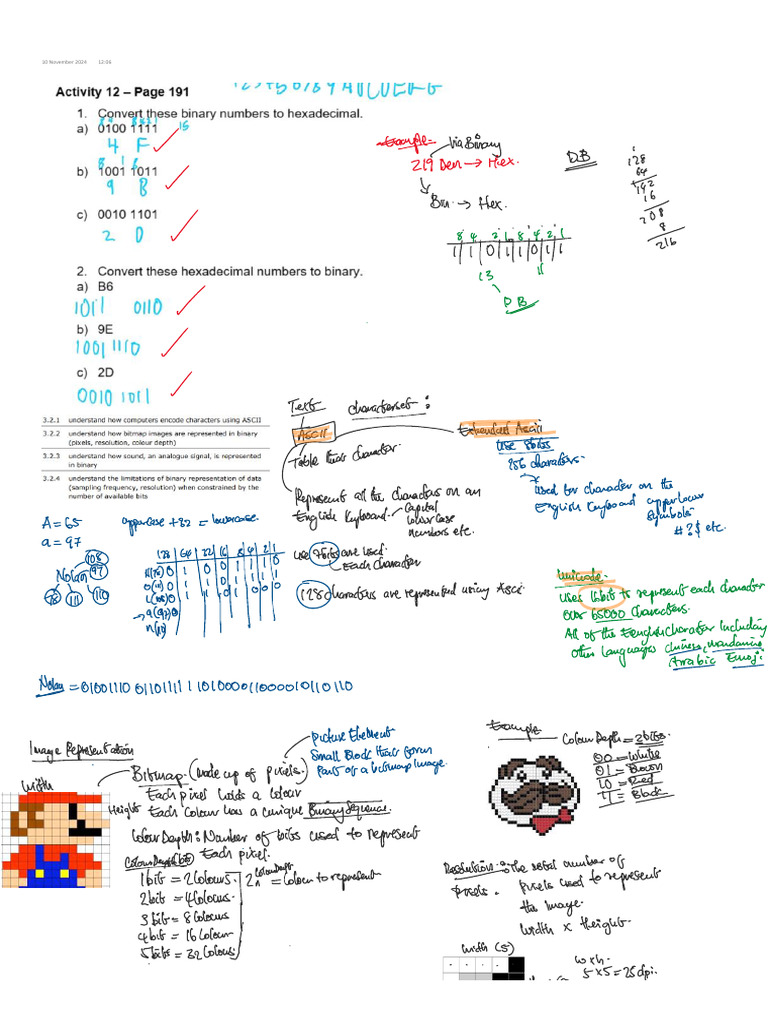 10 November 2024 12:06
Activity 12 – Page 191
1. Convert these binary numbers to hexadecimal.
a) 0100 1111
15
4 F
b) 1001 1011
9 B
c) 0010 1101
2 D
2. Convert these hexadecimal numbers to binary.
a) B6
1011 0110
b) 9E
1001 1110
c) 2D
0010 1011
Example
Via Binary
219 Den → Hex.
Bin → Hex.
8 4 2 1 8 4 2 1
1 1 0 1 1 0 1 1
13 11
DB
DB
128
64
192
16
208
8
216
3.2.1 understand how computers encode characters using ASCII
3.2.2 understand how bitmap images are represented in binary (pixels, resolution, colour depth)
3.2.3 understand how sound, an analogue signal, is represented in binary
3.2.4 understand the limitations of binary representation of data (sampling frequency, resolution) when constrained by the number of available bits
Text characterset:
ASCII
Represent all the characters on an
English Keyboard.
Capital
lowercase
numbers etc.
use 7bits are used.
Each character
128 characters are represented using Ascii
Extended Ascii
Use 8bits
256 characters.
Used for character on the
English Keyboard upper lower
Symbols
# ? $ etc.
Unicode.
Uses 16bit to represent each character
Over 65000 characters.
All of the English character including
other languages chinese, mandarine
Arabic Emoji.
A = 65
a = 97
uppercase + 32 = lowercase.
Nolan
108
97
78 111 110
128 64 32 16 8 4 2 1
Image Representation
width
Height
Bitmap. (Made up of pixels.)
Picture Element
Small Block that form
Part of a bitmap Image.
Each pixel holds a colour
Each Colour has a unique Binary Sequence.
Colour Depth: Number of bits used to represent
Each pixel.
Colour Depth bits
1bit = 2Colours.
2bit = 4Colours.
3bit = 8Colours
4bit = 16Colour
5bits = 32Colours
2^Colour Depth = Colour to represent
Example
Colour Depth = 2bits.
00 = White
01 = Brown
10 = Red
11 = Black
Resolution: The total number of
pixels. pixels used to represent
the Image.
Width x Height.
Width (5)
w x h.
5 x 5 = 25dpi.